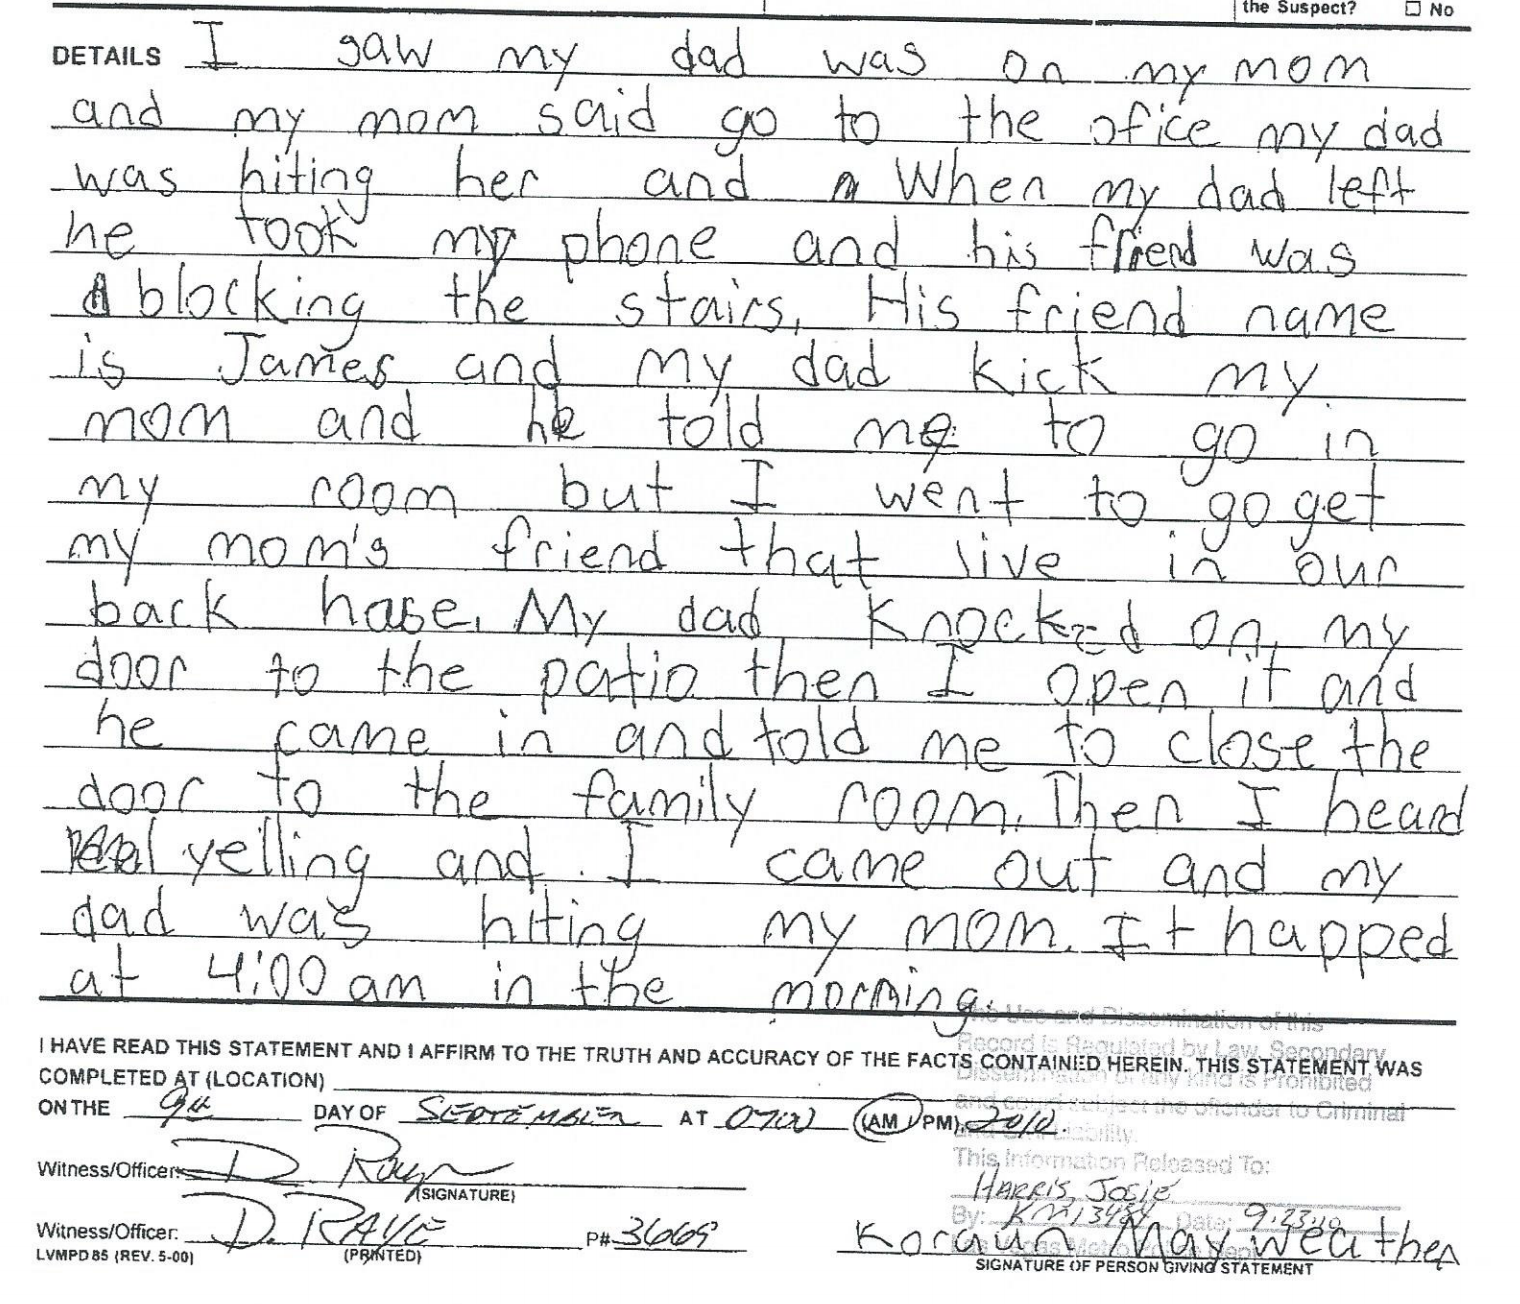 the Suspect? ☐ No
DETAILS I saw my dad was on my mom
and my mom said go to the ofice my dad
was hiting her and When my dad left
he took my phone and his friend was
blocking the stairs, His friend name
is James and my dad kick my
mom and he told me to go in
my room but I went to go get
my mom's friend that live in our
back hase. My dad knocked on my
door to the patio then I open it and
he came in and told me to close the
door to the family room. Then I heard
yelling and I came out and my
dad was hiting my mom. It happed
at 4:00 am in the morning.
I HAVE READ THIS STATEMENT AND I AFFIRM TO THE TRUTH AND ACCURACY OF THE FACTS CONTAINED HEREIN. THIS STATEMENT WAS
COMPLETED AT (LOCATION)
ON THE 9th DAY OF SEPTEMBER AT 0700 (AM / PM), 2010.
The Use and Dissemination of this
Record is Regulated by Law. Secondary
Dissemination of any kind is Prohibited
and could subject the offender to Criminal
and Civil Liability.
This Information Released To:
HARRIS, JOSIE
By: Date: 9.23.10
Las Vegas Metro Police Dept
Witness/Officer: D. Raye
(SIGNATURE)
Witness/Officer: D. RAYE P# 3669 Koraun Mayweather
(PRINTED)
LVMPD 85 (REV. 5-00) SIGNATURE OF PERSON GIVING STATEMENT